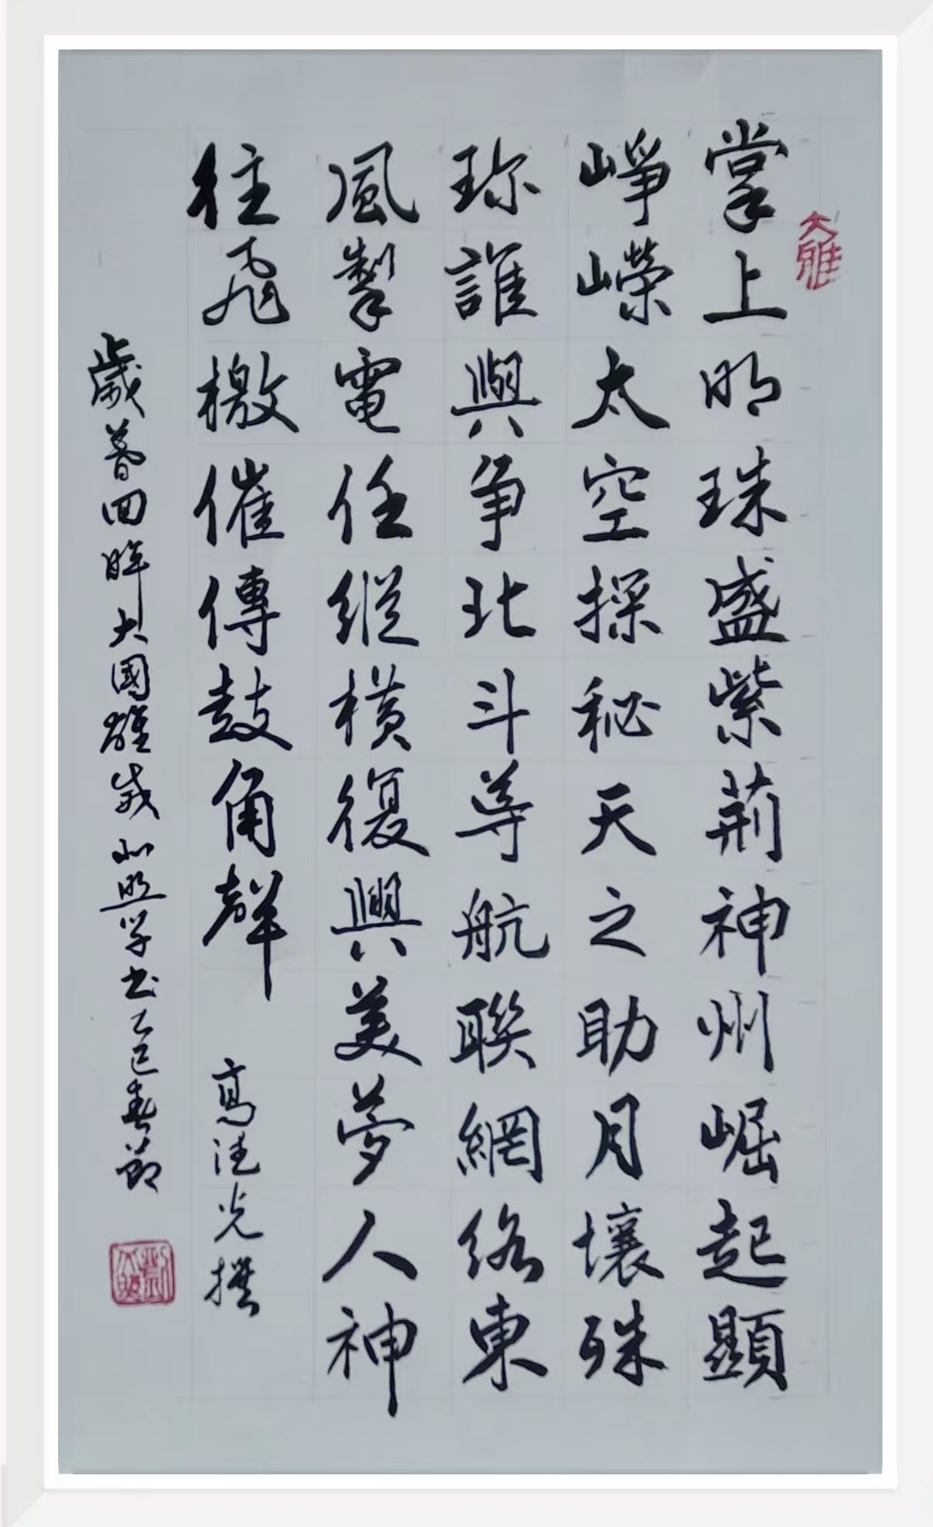 大雅
掌上明珠盛紫荊神州崛起顯
崢嶸太空探秘天之助月壤殊
珍誰與争北斗导航聯網络東
風掣電任縱橫復興美夢人神
往飛檄催傳鼓角聲 高光撰
歲暮回眸大國雄威照学书乙巳春節